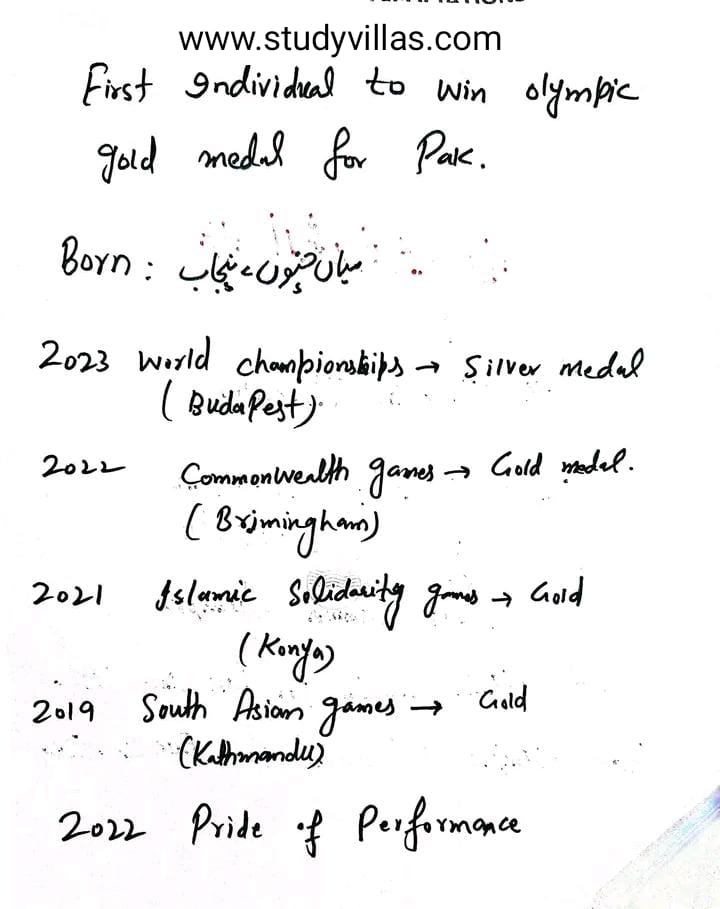 www.studyvillas.com
First Individual to win olympic
gold medal for Pak.
Born: میاں چنوں، پنجاب
2023 World championships → Silver medal
(BudaPest)
2022 Commonwealth games → Gold medal.
(Brimingham)
2021 Islamic Solidarity games → Gold
(Konya)
2019 South Asian games → Gold
(Kathmandu)
2022 Pride of Performance